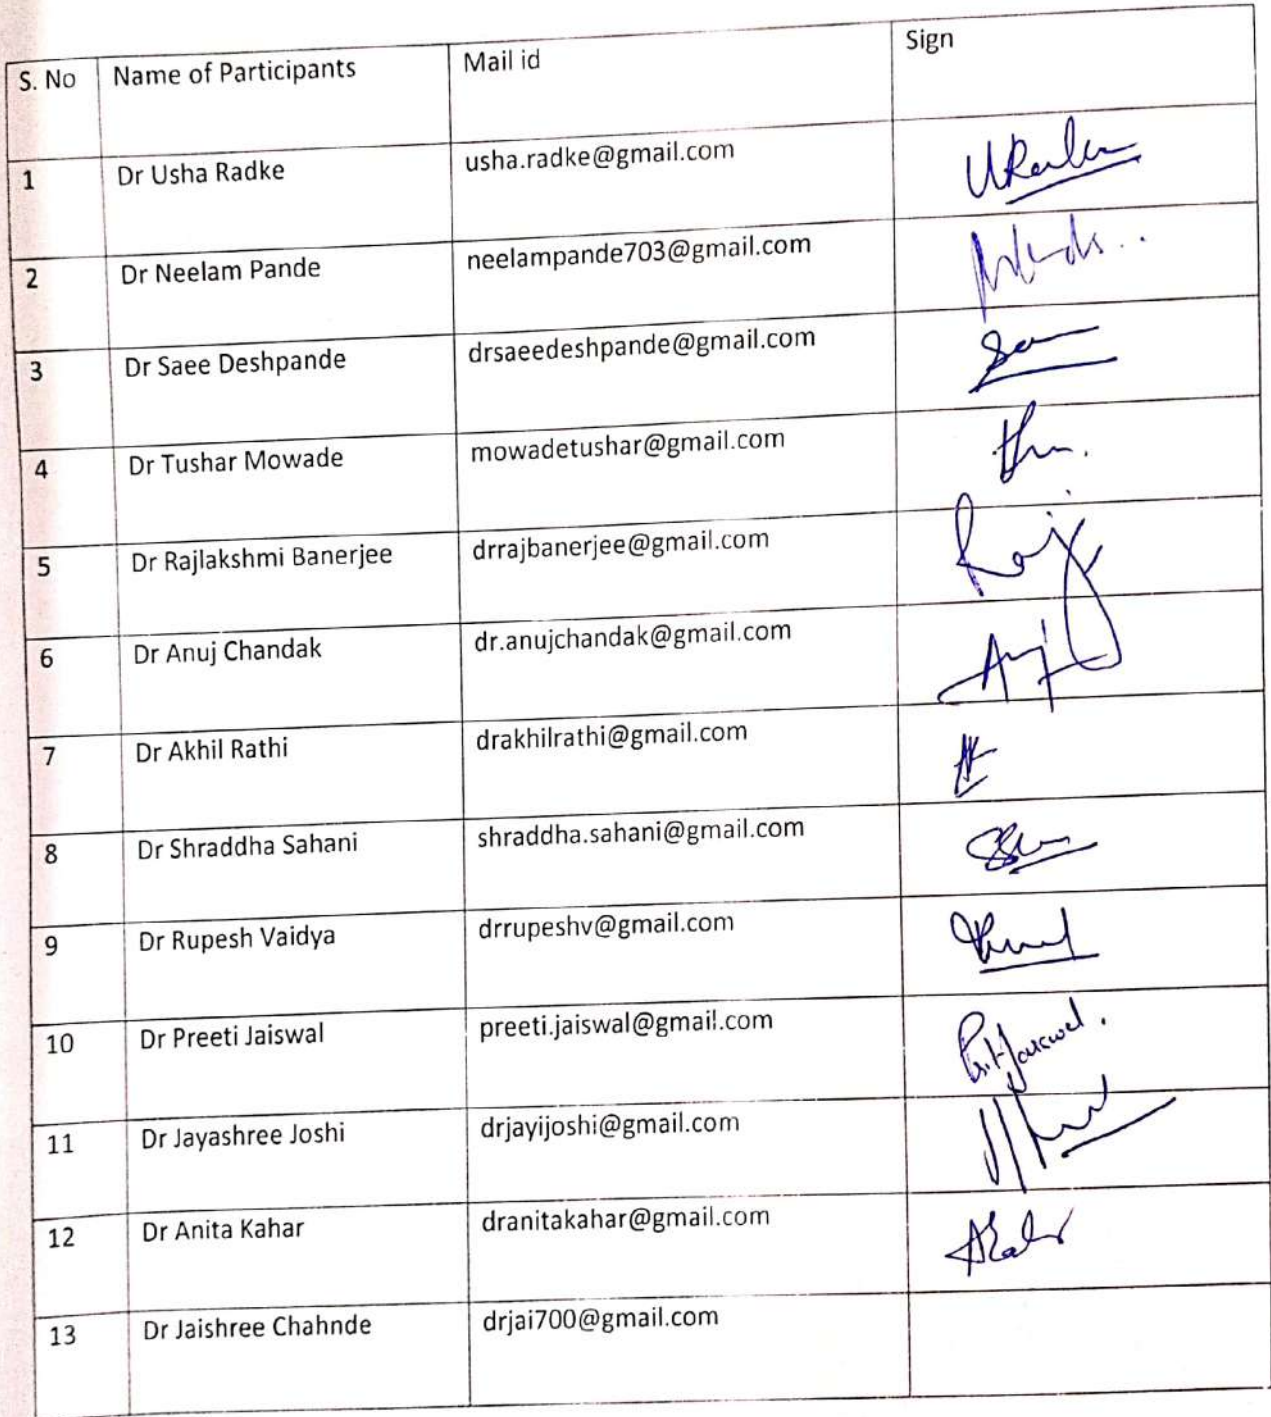 S. No Name of Participants Mail id Sign
1 Dr Usha Radke usha.radke@gmail.com
2 Dr Neelam Pande neelampande703@gmail.com
3 Dr Saee Deshpande drsaeedeshpande@gmail.com
4 Dr Tushar Mowade mowadetushar@gmail.com
5 Dr Rajlakshmi Banerjee drrajbanerjee@gmail.com Raj
6 Dr Anuj Chandak dr.anujchandak@gmail.com Anuj
7 Dr Akhil Rathi drakhilrathi@gmail.com
8 Dr Shraddha Sahani shraddha.sahani@gmail.com
9 Dr Rupesh Vaidya drrupeshv@gmail.com
10 Dr Preeti Jaiswal preeti.jaiswal@gmail.com
11 Dr Jayashree Joshi drjayijoshi@gmail.com
12 Dr Anita Kahar dranitakahar@gmail.com
13 Dr Jaishree Chahnde drjai700@gmail.com